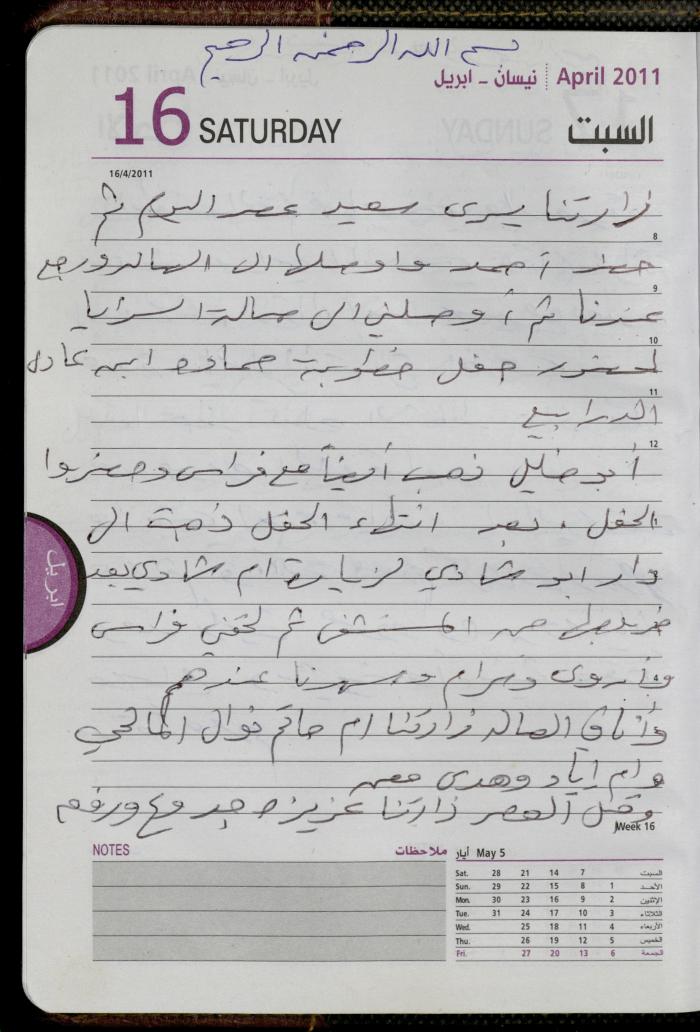 بسم الله الرحمن الرحيم
نيسان - ابريل April 2011
16 SATURDAY السبت
16/4/2011
زارتنا يسرى سعيد عصر اليوم ثم
8
حضر أحمد واوصلها الى الصالة ورجع
9
عندنا ثم أوصلني الى صالة السرايا
10
لحضور حفل خطوبة حمادة ابن عادل
11
الدرابيع
12
أبو خليل ذهب أيضاً مع فراس وحضروا
الحفل . بعد انتهاء الحفل ذهبت الى
دار ابو شادي لزيارة ام شادي بعد
من المستشفى ثم لحقني فراس
وأروى ومرام وسهرنا عندهم
وأثناء الصالة زارتنا ام حاتم نوال المالحي
وام اياد وهدى
وقبل العصر زارتنا عزيزة
ابريل
Week 16
NOTES ملاحظات
May 5 أيار
Sat. 28 21 14 7 السبت
Sun. 29 22 15 8 1 الأحد
Mon. 30 23 16 9 2 الإثنين
Tue. 31 24 17 10 3 الثلاثاء
Wed. 25 18 11 4 الأربعاء
Thu. 26 19 12 5 الخميس
Fri. 27 20 13 6 الجمعة